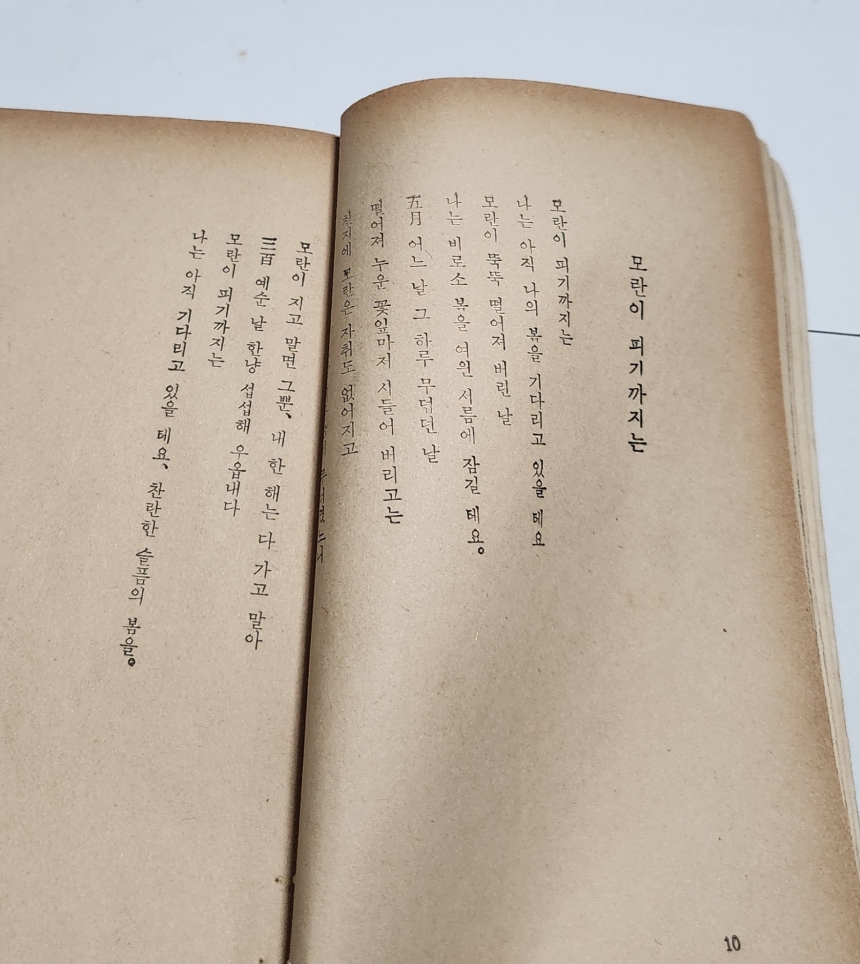 모란이 피기까지는
모란이 피기까지는
나는 아직 나의 봄을 기다리고 있을 테요
모란이 뚝뚝 떨어져 버린 날
나는 비로소 봄을 여윈 서름에 잠길 테요。
五月 어느 날 그 하루 무덥던 날
떨어져 누운 꽃잎마저 시들어 버리고는
천지에 모란은 자취도 없어지고
모란이 지고 말면 그뿐、 내 한 해는 다 가고 말아
三百 예순 날 한냥 섭섭해 우옵내다
모란이 피기까지는
나는 아직 기다리고 있을 테요、 찬란한 슬픔의 봄을。
10